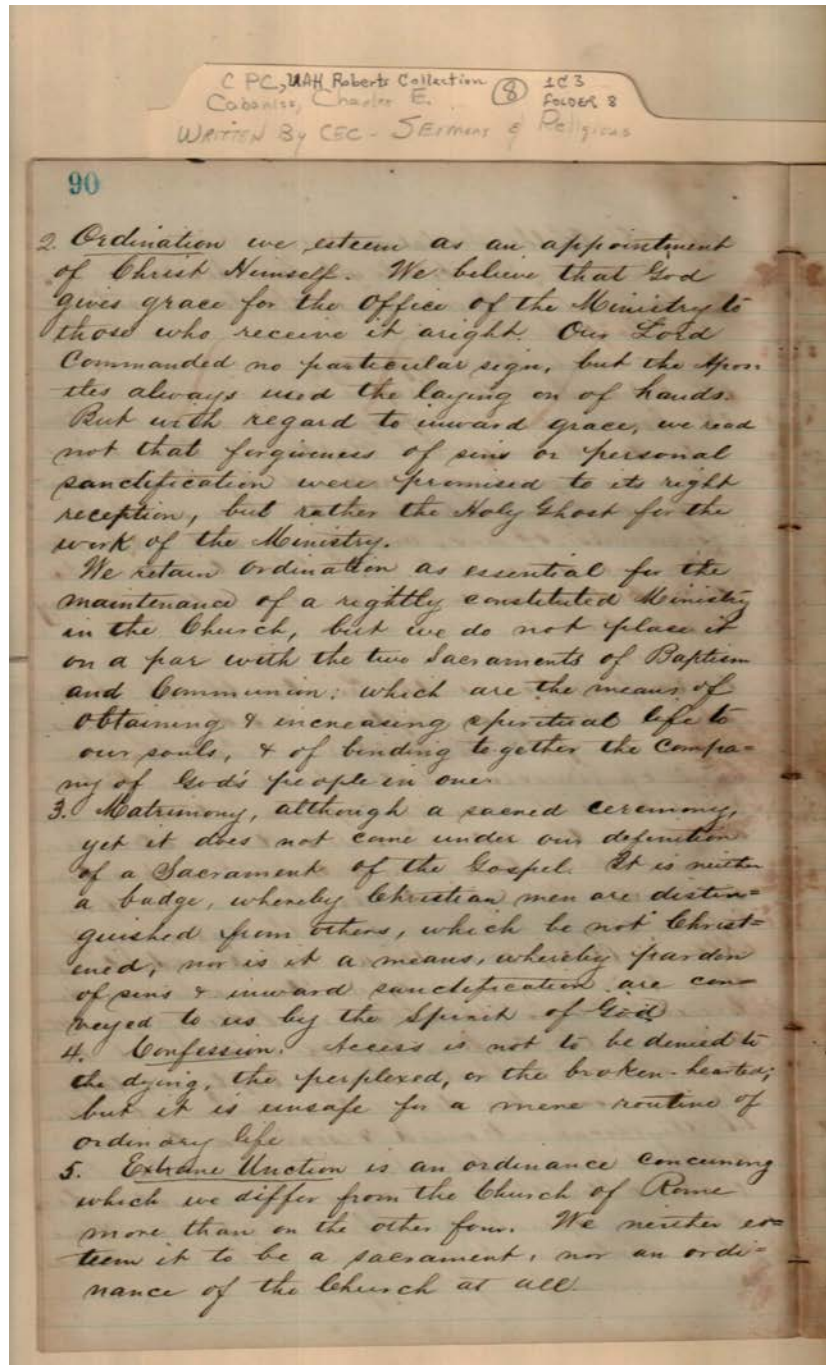 C PC, UAH Roberts Collection 8 1C3
Cabaniss, Charles E. FOLDER 8
WRITTEN By CEC - SERMONS & Religious
90
2. Ordination we esteem as an appointment
of Christ Himself. We believe that God
gives grace for the Office of the Ministry to
those who receive it aright. Our Lord
Commanded no particular sign, but the Apos
tles always used the laying on of hands.
But with regard to inward grace, we read
not that forgiveness of sins or personal
sanctification were promised to its right
reception, but rather the Holy Ghost for the
work of the Ministry.
We retain Ordination as essential for the
maintenance of a rightly constituted Ministry
in the Church, but we do not place it
on a par with the two Sacraments of Baptism
and Communion: which are the means of
obtaining & increasing spiritual life to
our souls, & of binding together the compa=
ny of God's people in one.
3. Matrimony, although a sacred ceremony,
yet it does not come under our definition
of a Sacrament of the Gospel. It is neither
a badge, whereby Christian men are distin=
guished from others, which be not Christ=
ened; nor is it a means, whereby pardon
of sins & inward sanctification are con=
veyed to us by the Spirit of God.
4. Confession. Access is not to be denied to
the dying, the perplexed, or the broken-hearted;
but it is unsafe for a mere routine of
ordinary life
5. Extrame Unction is an ordinance concerning
which we differ from the Church of Rome
more than on the other four. We neither es=
teem it to be a sacrament, nor an ordi=
nance of the Church at all.